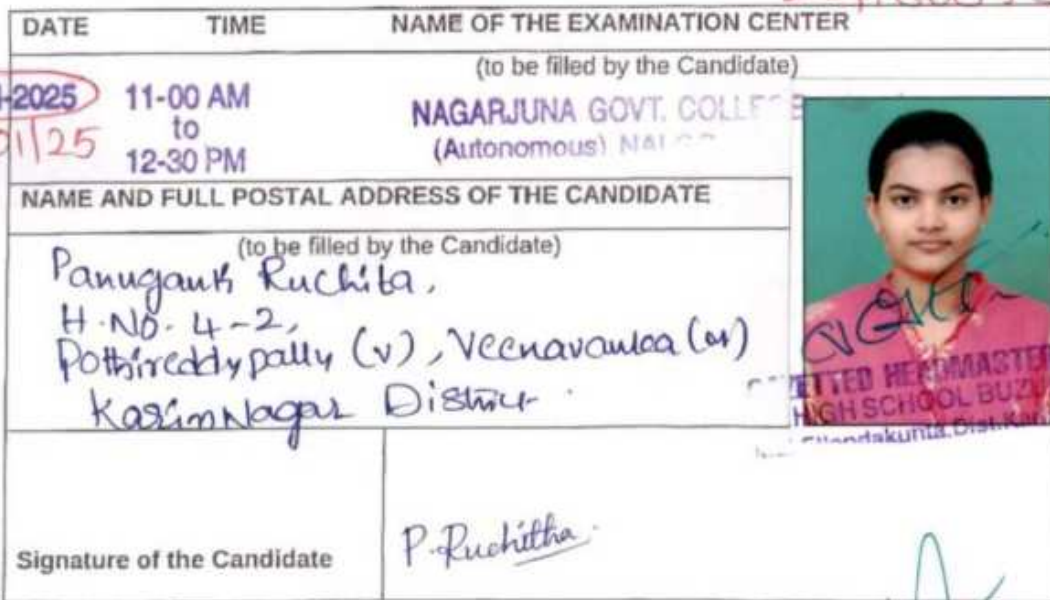 DATE TIME NAME OF THE EXAMINATION CENTER
(to be filled by the Candidate)
-2025 11-00 AM
to
01/25
12-30 PM
NAGARJUNA GOVT. COLLE
(Autonomous)
NAME AND FULL POSTAL ADDRESS OF THE CANDIDATE
(to be filled by the Candidate)
Ruchita,
H.NO. 4-2,
Pothireddypally (v), Veenavanka
KarimNagar District.
HEADMASTER
HIGH SCHOOL BUZU
Ellandakunta. Dist. Kar
Signature of the Candidate
P. Ruchitha.